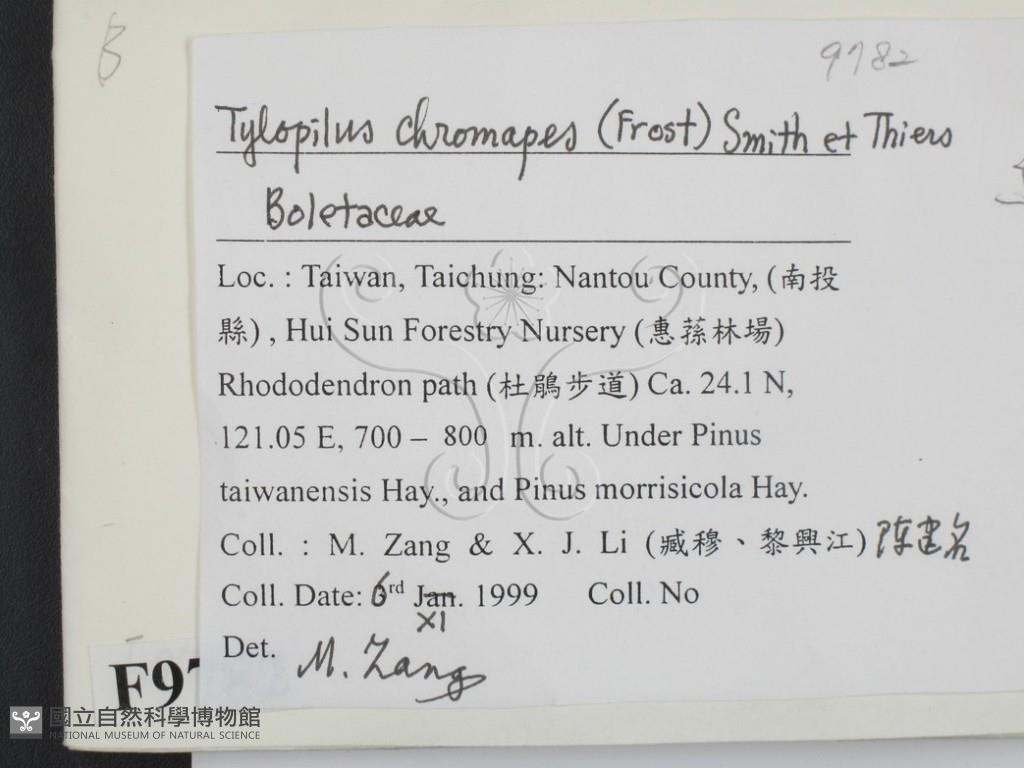 B
9782
Tylopilus chromapes (Frost) Smith et Thiers
Boletaceae
Loc. : Taiwan, Taichung: Nantou County, (南投
縣) , Hui Sun Forestry Nursery (惠蓀林場)
Rhododendron path (杜鵑步道) Ca. 24.1 N,
121.05 E, 700 – 800 m. alt. Under Pinus
taiwanensis Hay., and Pinus morrisicola Hay.
Coll. : M. Zang & X. J. Li (臧穆、黎興江) 陈建名
Coll. Date: 6rd Jan. 1999 Coll. No
XI
Det. M. Zang
F97
國立自然科學博物館
NATIONAL MUSEUM OF NATURAL SCIENCE